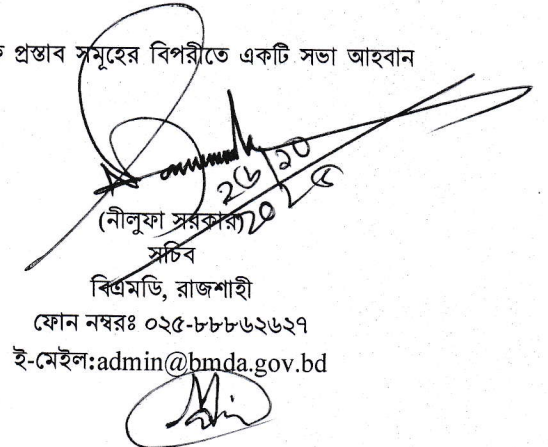 প্রস্তাব সমূহের বিপরীতে একটি সভা আহবান
(নীলুফা সরকার)
সচিব
বিএমডি, রাজশাহী
ফোন নম্বরঃ ০২৫-৮৮৮৬২৬২৭
ই-মেইল:admin@bmda.gov.bd